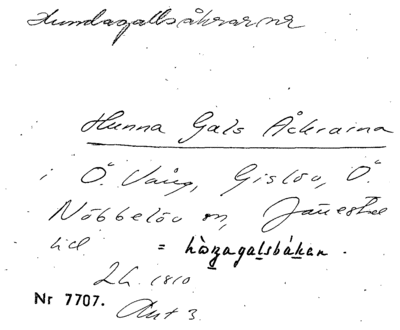 Hundagallsåkrarna
Hunna Gals Åckrarna
i Ö. Vång, Gislöv, Ö.
Nöbbelöv sn, Järrestad
hd = hòṇagalsbákan.
L.h. 1810
Nr 7707. Akt 3